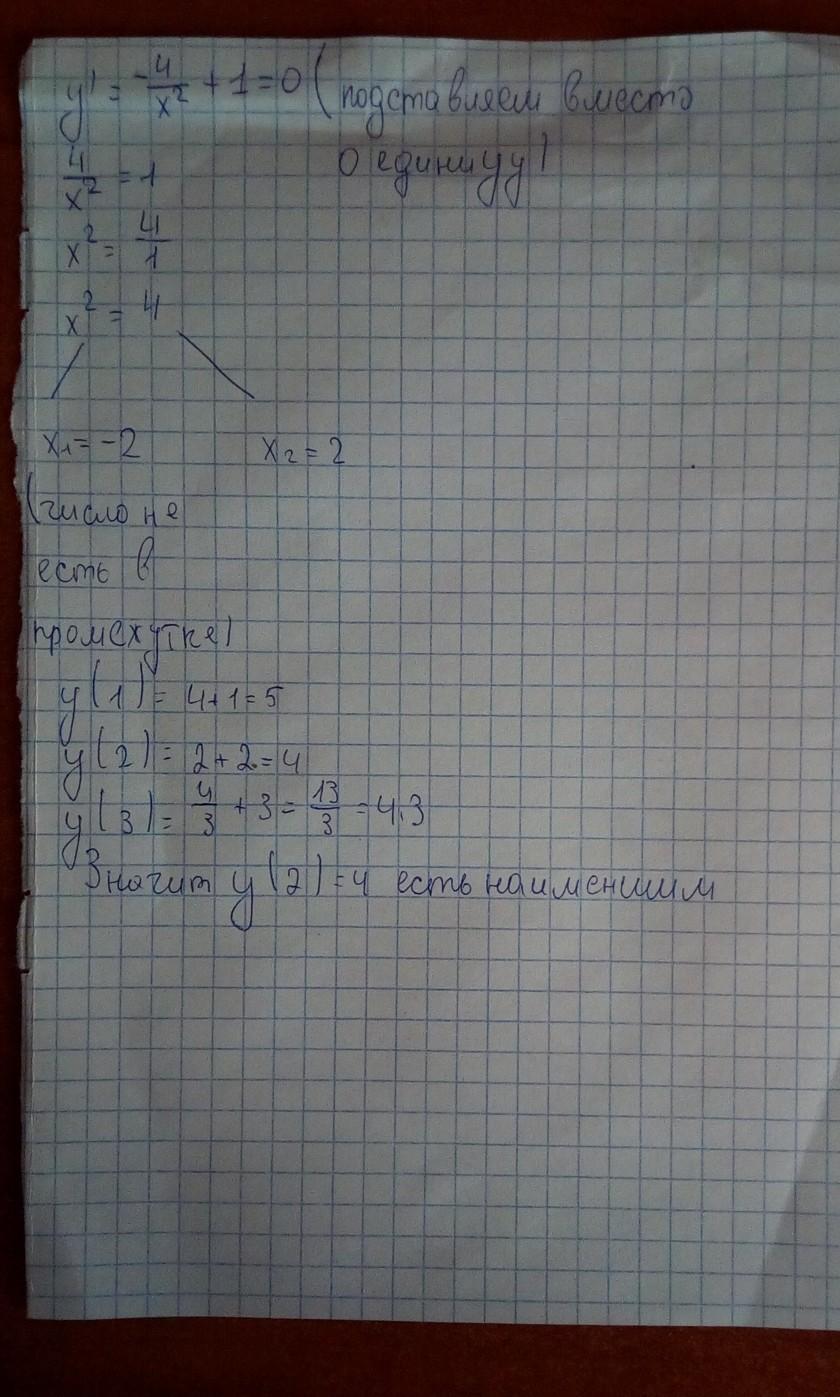 y' = -4/x² + 1 = 0 (подставляем вместо
0 единицу)
4/x² = 1
x² = 4/1
x² = 4
x₁ = -2 x₂ = 2
(число не
есть в
промежутке)
y(1) = 4+1=5
y(2) = 2+2=4
y(3) = 4/3 + 3 = 13/3 = 4,3
Значит y(2)=4 есть наименшим